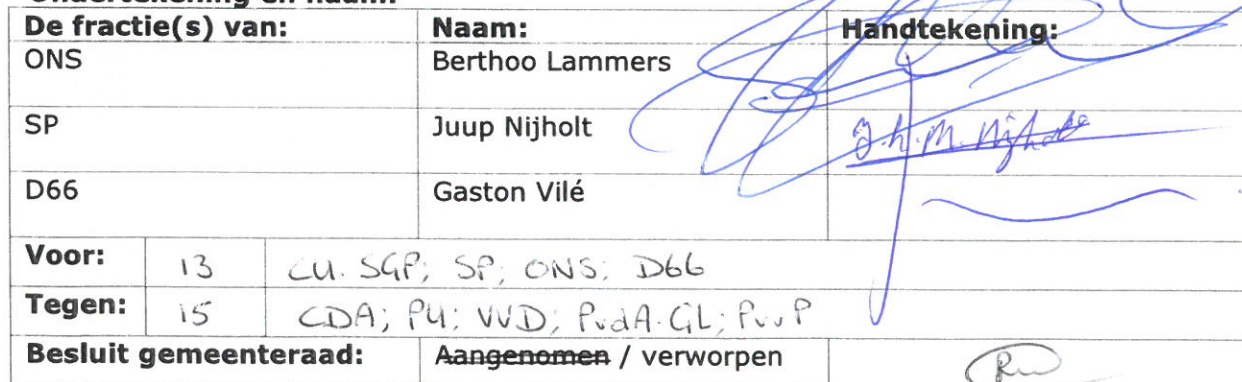 Ondertekening en naam:
De fractie(s) van: Naam: Handtekening:
ONS Berthoo Lammers
SP Juup Nijholt J.h.M. Nijholt
D66 Gaston Vilé
Voor: 13 CU.SGP; SP; ONS; D66
Tegen: 15 CDA; PU; VVD; PvdA.GL; PvvP
Besluit gemeenteraad: Aangenomen / verworpen